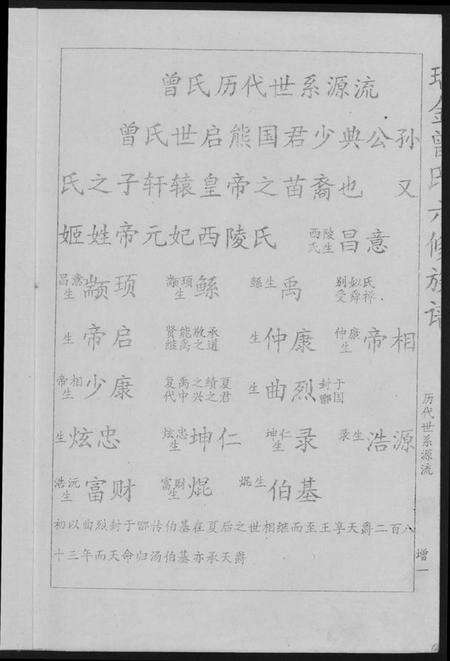 曾氏历代世系源流
曾氏世启熊国君少典公孙
氏之子轩辕皇帝之苗裔也 又
姬姓帝元妃西陵氏 西陵氏生昌意
昌意生颛顼 颛顼生鲧 鲧生禹 别姒氏受舜禅
生帝启 贤能敬承继禹之道 生仲康 仲康生帝相
帝相生少康 复禹之绩夏代中兴之君 生曲烈 封于鄫国
生炫忠 炫忠生坤仁 坤仁生录 录生浩源
浩沅生富财 富财生焜 焜生伯基
初以曲烈封于鄫传伯基在夏后之世相继而至王享天爵二百八
十三年而天命归汤伯基亦承天爵
瑞金曾氏六修族谱
历代世系源流
增一